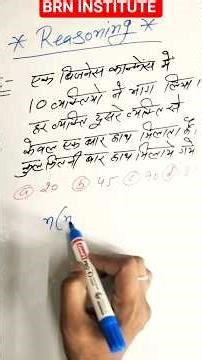 BRN INSTITUTE
* Reasoning *
एक बिजनेस कान्फ्रेंस में
10 व्यक्तियों ने भाग लिया।
हर व्यक्ति दूसरे व्यक्ति से
केवल एक बार हाथ मिलाता है।
कुल कितनी बार हाथ मिलाये गये
ⓐ 20 ⓑ 45 ⓒ 90 ⓓ
n(n